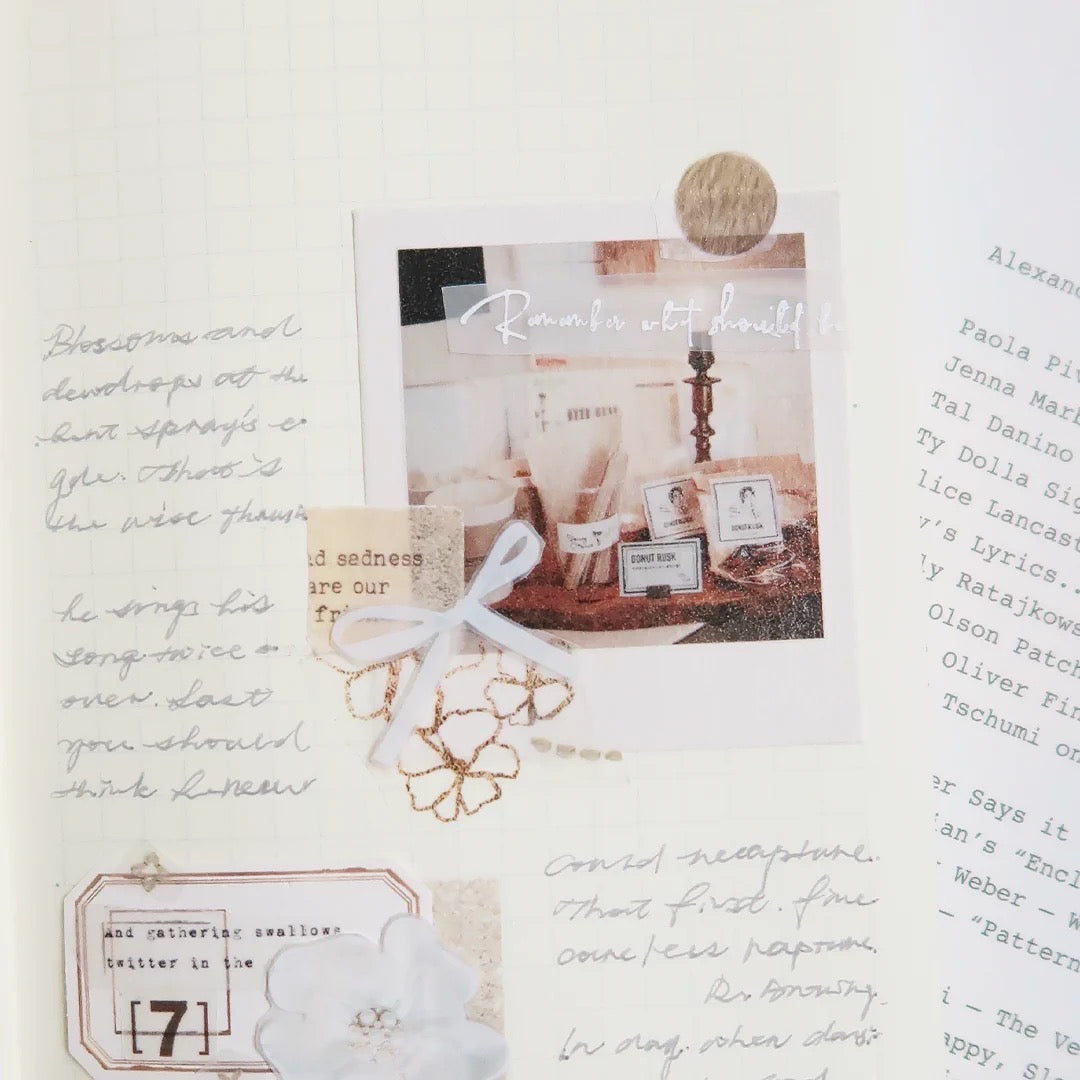 Blossoms and
dewdrops at the
bent spray's e
gde. That's
the wise thrush
he sings his
song twice
over. Last
you should
think
Remember what should be
DONUT RUSK
DONUT RUSK
DONUT RUSK
d sadness
are our
fri
And gathering swallows
twitter in the
[7]
could recapture.
That first. fine
careless rapture.
R. Browning.
In day. when days
Alexand
Paola Piv
Jenna Marb
Tal Danino
Ty Dolla Sig
lice Lancast
v's Lyrics..
ly Ratajkows
Olson Patch
Oliver Fin
Tschumi on
er Says it
ian's "Encl
Weber — W
— "Pattern
i — The Ve
appy, Sl